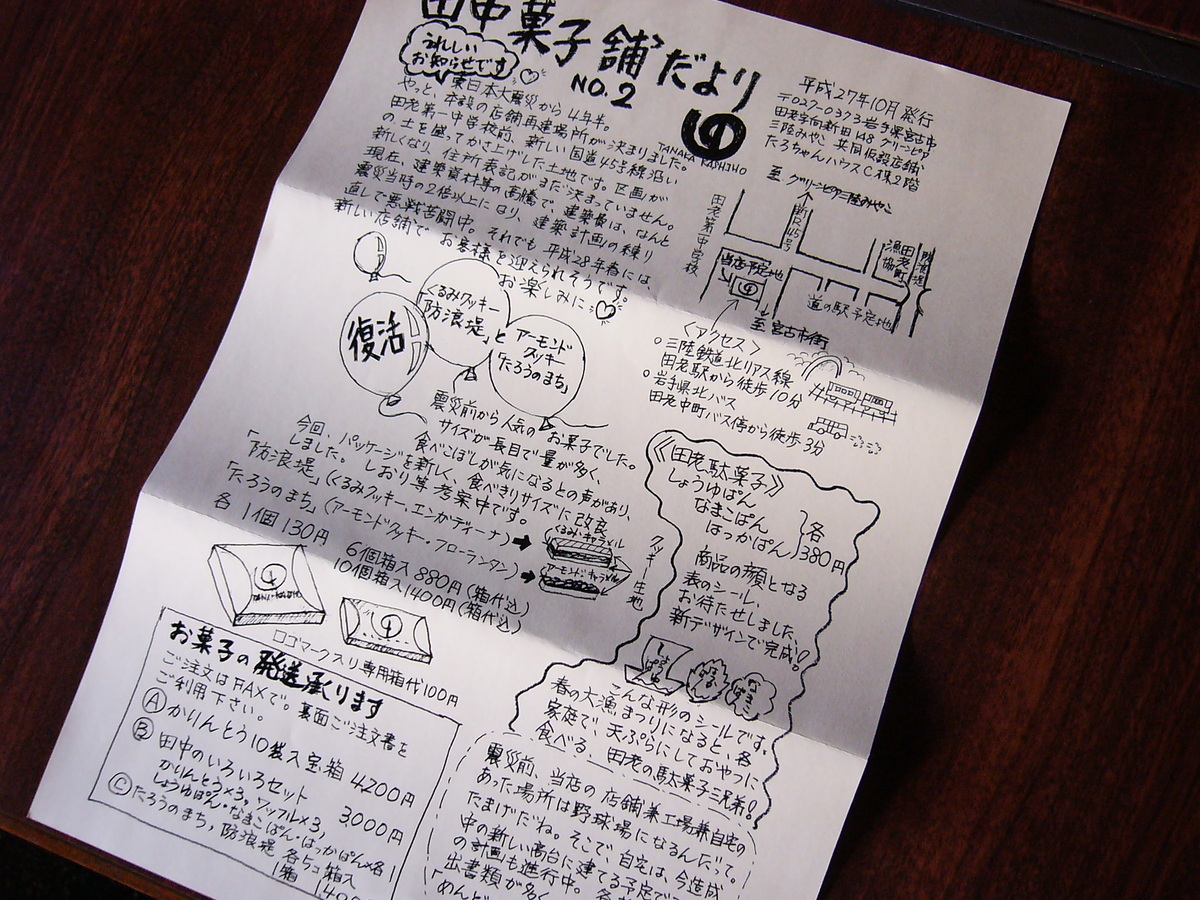 田中菓子舗だより
NO.2
うれしい
お知らせです
TANAKA KASHIHO
平成27年10月発行
〒027-0373岩手県宮古市
田老字向新田148 グリーンピア
三陸みやこ 共同仮設店舗
たろちゃんハウスC棟2階
東日本大震災から4年半。
やっと、本設の店舗再建場所が決まりました。
田老第一中学校前、新しい国道45号線沿い
の土を盛ってかさ上げした土地です。区画が
新しくなり、住所表記がまだ決まっていません。
現在、建築資材等の高騰で、建築費は、なんと
震災当時の2倍以上になり、建築計画の練り
直しで悪戦苦闘中。それでも平成28年春には、
新しい店舗で、お客様を迎えられそうです。
お楽しみに
至 グリーンピア三陸みやこ
田老第一中学校
新R45号
当店予定地
田老町
漁協
道の駅予定地
至 宮古市街
〈アクセス〉
○三陸鉄道北リアス線
田老駅から徒歩10分
○岩手県北バス
田老中町バス停から徒歩3分
復活
くるみクッキー
「防浪堤」と
アーモンド
クッキー
「たろうのまち」
震災前から人気のお菓子でした。
サイズが長目で量が多く、
食べこぼしが気になるとの声があり、
今回、パッケージを新しく、食べきりサイズに改良
しました。しおり等考案中です。
「防浪堤」(くるみクッキー、エンガディーナ)
「たろうのまち」(アーモンドクッキー・フローランタン)
各1個130円
くるみ・キャラメル
アーモンド・キャラメル
クッキー生地
6個箱入 880円(箱代込)
10個箱入1400円(箱代込)
ロゴマーク入り専用箱代100円
《田老駄菓子》
しょうゆぱん
なまこぱん
はっかぱん
各
380円
商品の顔となる
表のシール、
お待たせしました、
新デザインで完成!
こんな形のシールです。
春の大漁まつりになると、各
家庭で、天ぷらにしておやつに
食べる、田老の駄菓子三兄弟!
お菓子の発送承ります
ご注文はFAXで。裏面ご注文書を
ご利用下さい。
Ⓐかりんとう10袋入宝箱 4200円
Ⓑ田中のいろいろセット 3,000円
かりんとう×3, ワッフル×3,
しょうゆぱん・なまこぱん・はっかぱん×各
Ⓒたろうのまち, 防浪堤 各5コ箱入
震災前、当店の店舗兼工場兼自宅の
あった場所は野球場になるんだって。
たまげだね。そこで、自宅は、今造成
中の新しい高台に建てる予定で
の計画も進行中。
出書類が多く
「めんど